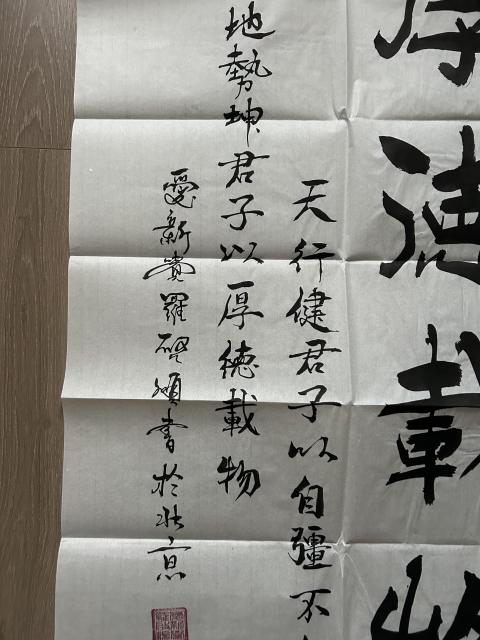 厚德載物
天行健君子以自彊不
地勢坤君子以厚德載物
愛新覺羅 書於北京